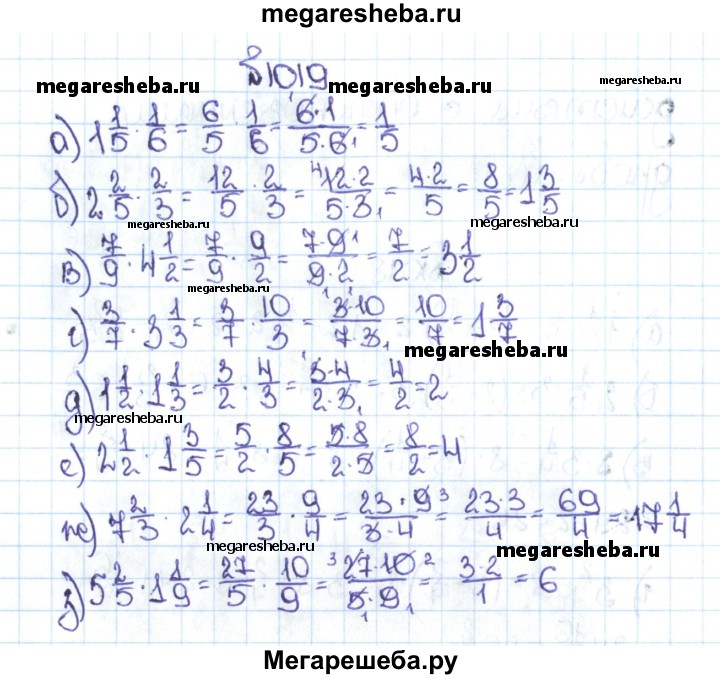 megaresheba.ru
№1019
megaresheba.ru megaresheba.ru megaresheba.ru
а) 1 1/5 · 1/6 = 6/5 · 1/6 = 6·1/5·6 = 1/5
б) 2 2/5 · 2/3 = 12/5 · 2/3 = 12·2/5·3 = 4·2/5 = 8/5 = 1 3/5
megaresheba.ru megaresheba.ru
в) 7/9 · 4 1/2 = 7/9 · 9/2 = 7·9/9·2 = 7/2 = 3 1/2
megaresheba.ru
г) 3/7 · 3 1/3 = 3/7 · 10/3 = 3·10/7·3 = 10/7 = 1 3/7
megaresheba.ru
д) 1 1/2 · 1 1/3 = 3/2 · 4/3 = 3·4/2·3 = 4/2 = 2
megaresheba.ru
е) 2 1/2 · 1 3/5 = 5/2 · 8/5 = 5·8/2·5 = 8/2 = 4
ж) 7 2/3 · 2 1/4 = 23/3 · 9/4 = 23·9/3·4 = 23·3/4 = 69/4 = 17 1/4
megaresheba.ru megaresheba.ru
з) 5 2/5 · 1 1/9 = 27/5 · 10/9 = 27·10/5·9 = 3·2/1 = 6
Мегарешеба.ру